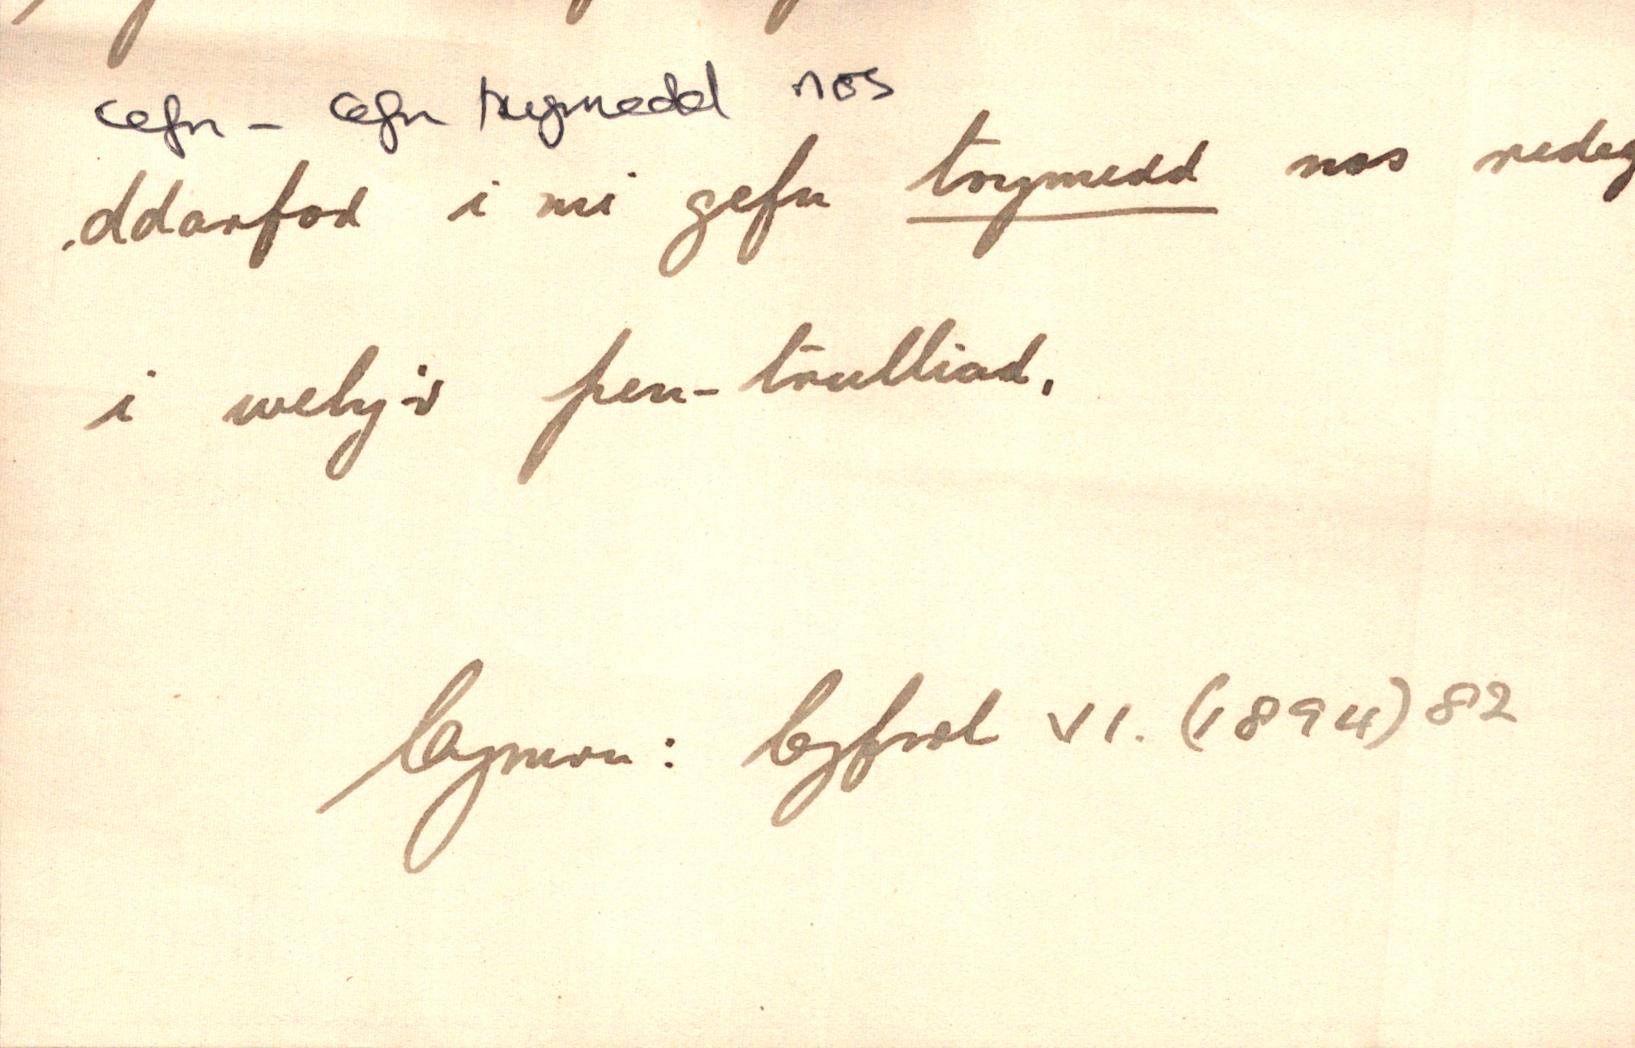 cefn - cefn trymedd nos
ddarfod i mi gefn trymedd nos redeg
i wely'r pen-trulliad.
Cymru: Cyfrol VI. (1894) 82